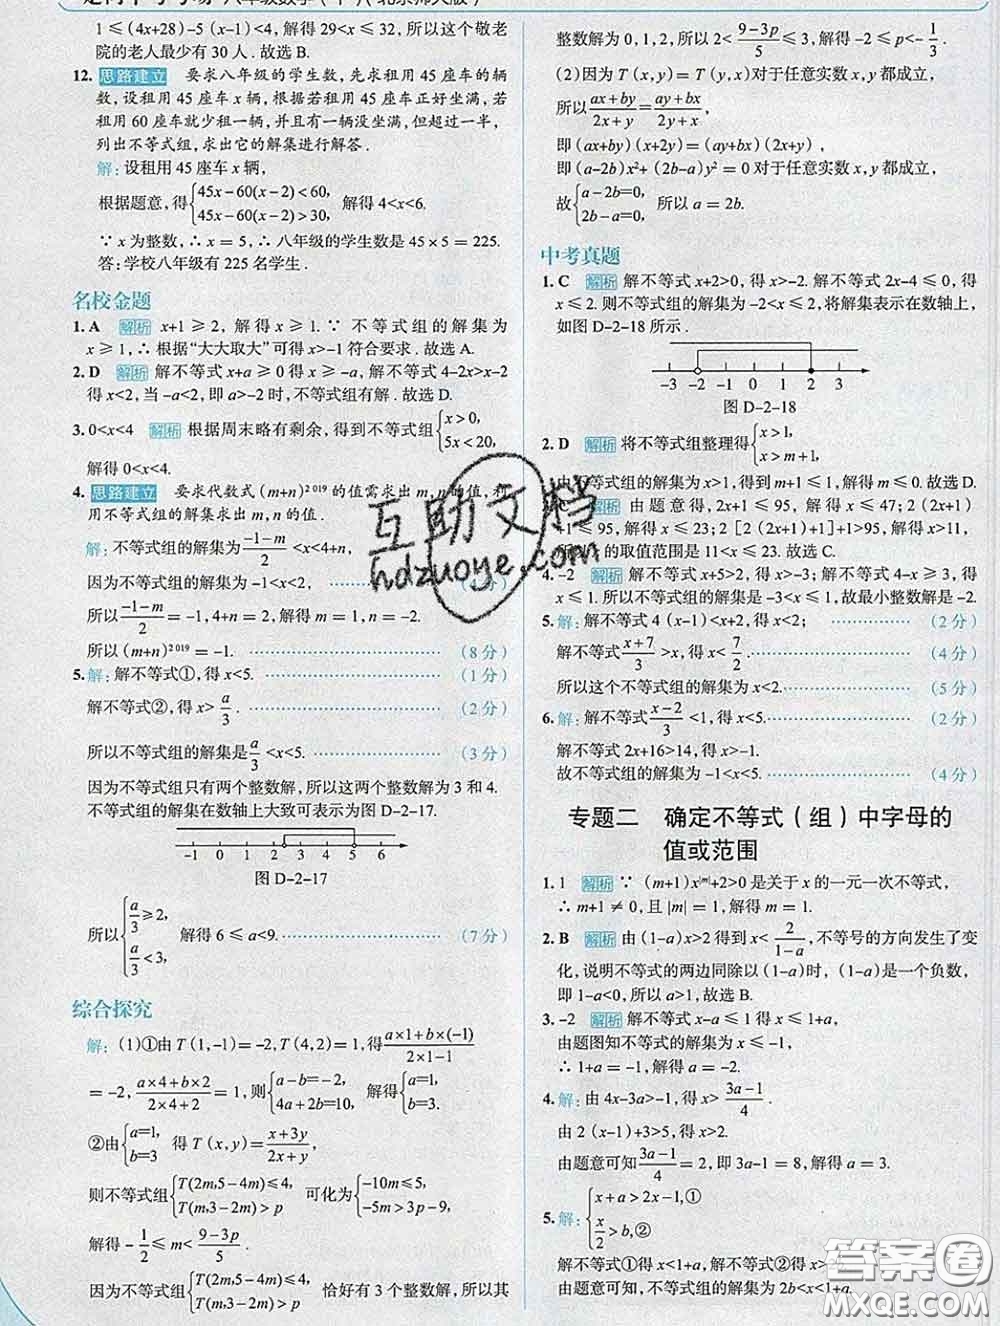 1≤(4x+28)-5(x-1)<4,解得29<x≤32,所以这个敬老
院的老人最少有30人.故选B.
12. 思路建立 要求八年级的学生数,先求租用45座车的辆
数,设租用45座车x辆,根据若租用45座车正好坐满,若
租用60座车就少租一辆,并且有一辆没坐满,但超过一半,
列出不等式组,求出它的解集进行解答.
解:设租用45座车x辆,
根据题意,得{45x-60(x-2)<60, 45x-60(x-2)>30, 解得4<x<6.
∵x为整数,∴x=5,∴八年级的学生数是45×5=225.
答:学校八年级有225名学生.
名校金题
1. A 解析 x+1≥2,解得x≥1.∵不等式组的解集为
x≥1,∴根据“大大取大”可得x>-1符合要求.故选A.
2. D 解析 解不等式x+a≥0得x≥-a,解不等式4-2x>x-2
得x<2,当-a<2,即a>-2时,不等式组有解.故选D.
3. 0<x<4 解析 根据周末略有剩余,得到不等式组{x>0, 5x<20,
解得0<x<4.
4. 思路建立 要求代数式(m+n)²⁰¹⁹的值需求出m,n的值,利
用不等式组的解集求出m,n的值.
解:不等式组的解集为(-1-m)/2<x<4+n,
因为不等式组的解集为-1<x<2,
所以(-1-m)/2=-1,4+n=2,解得m=1,n=-2.
所以(m+n)²⁰¹⁹=-1. (8分)
5. 解:解不等式①,得x<5. (1分)
解不等式②,得x>a/3. (2分)
所以不等式组的解集是a/3<x<5. (3分)
因为不等式组只有两个整数解,所以这两个整数解为3和4.
不等式组的解集在数轴上大致可表示为图D-2-17.
-1 0 1 2 3 4 5 6
图D-2-17
所以{a/3≥2, a/3<3, 解得6≤a<9. (7分)
综合探究
解:(1)①由T(1,-1)=-2,T(4,2)=1,得(a×1+b×(-1))/(2×1-1)
=-2,(a×4+b×2)/(2×4+2)=1,则{a-b=-2, 4a+2b=10, 解得{a=1, b=3.
②由{a=1, b=3 得T(x,y)=(x+3y)/(2x+y),
则不等式组{T(2m,5-4m)≤4, T(m,3-2m)>p 可化为{-10m≤5, -5m>3p-9,
解得-1/2≤m<(9-3p)/5.
因为不等式组{T(2m,5-4m)≤4, T(m,3-2m)>p 恰好有3个整数解,所以其
整数解为0,1,2,所以2<(9-3p)/5≤3,解得-2≤p<-1/3.
(2)因为T(x,y)=T(y,x)对于任意实数x,y都成立,
所以(ax+by)/(2x+y)=(ay+bx)/(2y+x),
即(ax+by)(x+2y)=(ay+bx)(2x+y),
即(a-2b)x²+(2b-a)y²=0对于任意实数x,y都成立,
故{a-2b=0, 2b-a=0, 所以a=2b.
中考真题
1. C 解析 解不等式x+2>0,得x>-2.解不等式2x-4≤0,得
x≤2.则不等式组的解集为-2<x≤2,将解集表示在数轴上,
如图D-2-18所示.
-3 -2 -1 0 1 2 3
图D-2-18
2. D 解析 将不等式组整理得{x>1, x>m+1,
由不等式组的解集为x>1,得到m+1≤1,解得m≤0.故选D.
解析 由题意得,2x+1≤95,解得x≤47;2(2x+1)
+1≤95,解得x≤23;2[2(2x+1)+1]+1>95,解得x>11,
的取值范围是11<x≤23.故选C.
4. -2 解析 解不等式x+5>2,得x>-3;解不等式4-x≥3,得
x≤1,所以不等式组的解集是-3<x≤1,故最小整数解是-2.
5. 解:解不等式4(x-1)<x+2,得x<2; (2分)
解不等式(x+7)/3>x,得x<7/2. (4分)
所以这个不等式组的解集为x<2. (5分)
6. 解:解不等式(x-2)/3<1,得x<5. (2分)
解不等式2x+16>14,得x>-1.
故不等式组的解集为-1<x<5. (4分)
专题二 确定不等式(组)中字母的
值或范围
1. 1 解析 ∵(m+1)x|m|+2>0是关于x的一元一次不等式,
∴m+1≠0,且|m|=1,解得m=1.
2. B 解析 由(1-a)x>2得到x<2/(1-a),不等号的方向发生了变
化,说明不等式的两边同除以(1-a)时,(1-a)是一个负数,
即1-a<0,所以a>1.故选B.
3. -2 解析 解不等式x-a≤1得x≤1+a,
由题图知不等式的解集为x≤-1,
∴1+a=-1,解得a=-2.
4. 解:由4x-3a>-1,得x>(3a-1)/4.
由2(x-1)+3>5,得x>2.
由题意可知(3a-1)/4=2,即3a-1=8,解得a=3.
5. 解:{x+a>2x-1,① x/2>b,②
解不等式①得x<1+a,解不等式②得x>
由题意可得,不等式组的解集为2b<x<1+a.
互助文档
hdzuoye.com
答案圈
MXQE.COM